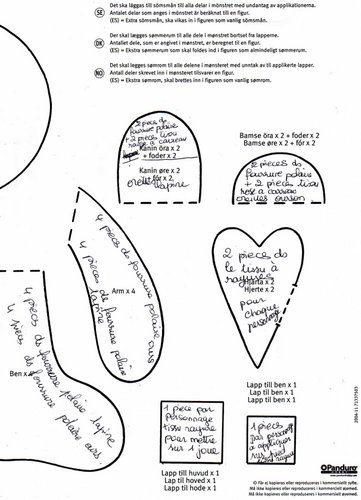 SE
Det ska läggas till sömsmån till alla delar i mönstret med undantag av applikationerna.
Antalet delar som anges i mönstret är beräknat till en figur.
(ES) = Extra sömsmån, ska vikas in i figuren som vanlig sömsmån.
DK
Der skal lægges sømmerum til alle dele i mønsteret bortset fra lapperne.
Antallet dele, som er angivet i mønstret, er beregnet til en figur.
(ES) = Ekstra sømmerum som skal foldes ind i figuren som almindeligt sømmerum.
NO
Det skal legges sømrom til alle delene i mønsteret med unntak av til applikerte lapper.
Antall deler skrevet inn i mønsteret tilsvarer en figur.
(ES) = Ekstra sømrom, skal brettes inn i figuren som vanlig sømrom.
2 pieces de
fourrure polaire
+ 2 pieces tissu
rose a carreau
Kanin öra x 2
+ foder x 2
Kanin øre x 2
+ fór x 2
oreilles
lapine
Bamse öra x 2 + foder x 2
Bamse øre x 2 + fór x 2
2 pieces de
fourrure polaire
+ 2 pieces tissu
rose a carreau
oreilles ourson
4 pieces de fourrure polaire ours
4 pieces de fourrure polaire
lapine
Arm x 4
2 pieces de
le tissu à
rayures
Hjärta x 2
Hjerte x 2
pour
chaque
personnage
4 pieces de fourrure polaire lapine
4 pieces de fourrure
polaire ours.
Ben x 4
Lapp till ben x 1
Lap til ben x 1
1 piece par
personnage
tissu rayure
pour mettre
sur 1 joue
Lapp till huvud x 1
Lap til hoved x 1
Lapp til hode x 1
1 pieces
par personnage
a appliquer
sur
Panduro
© Får ej kopieras eller reproduceras i kommersiellt syfte.
Må ikke kopieres eller reproduceres i kommercielt øjemed.
Må ikke kopieres eller reproduseres i kommersiell øyemed.